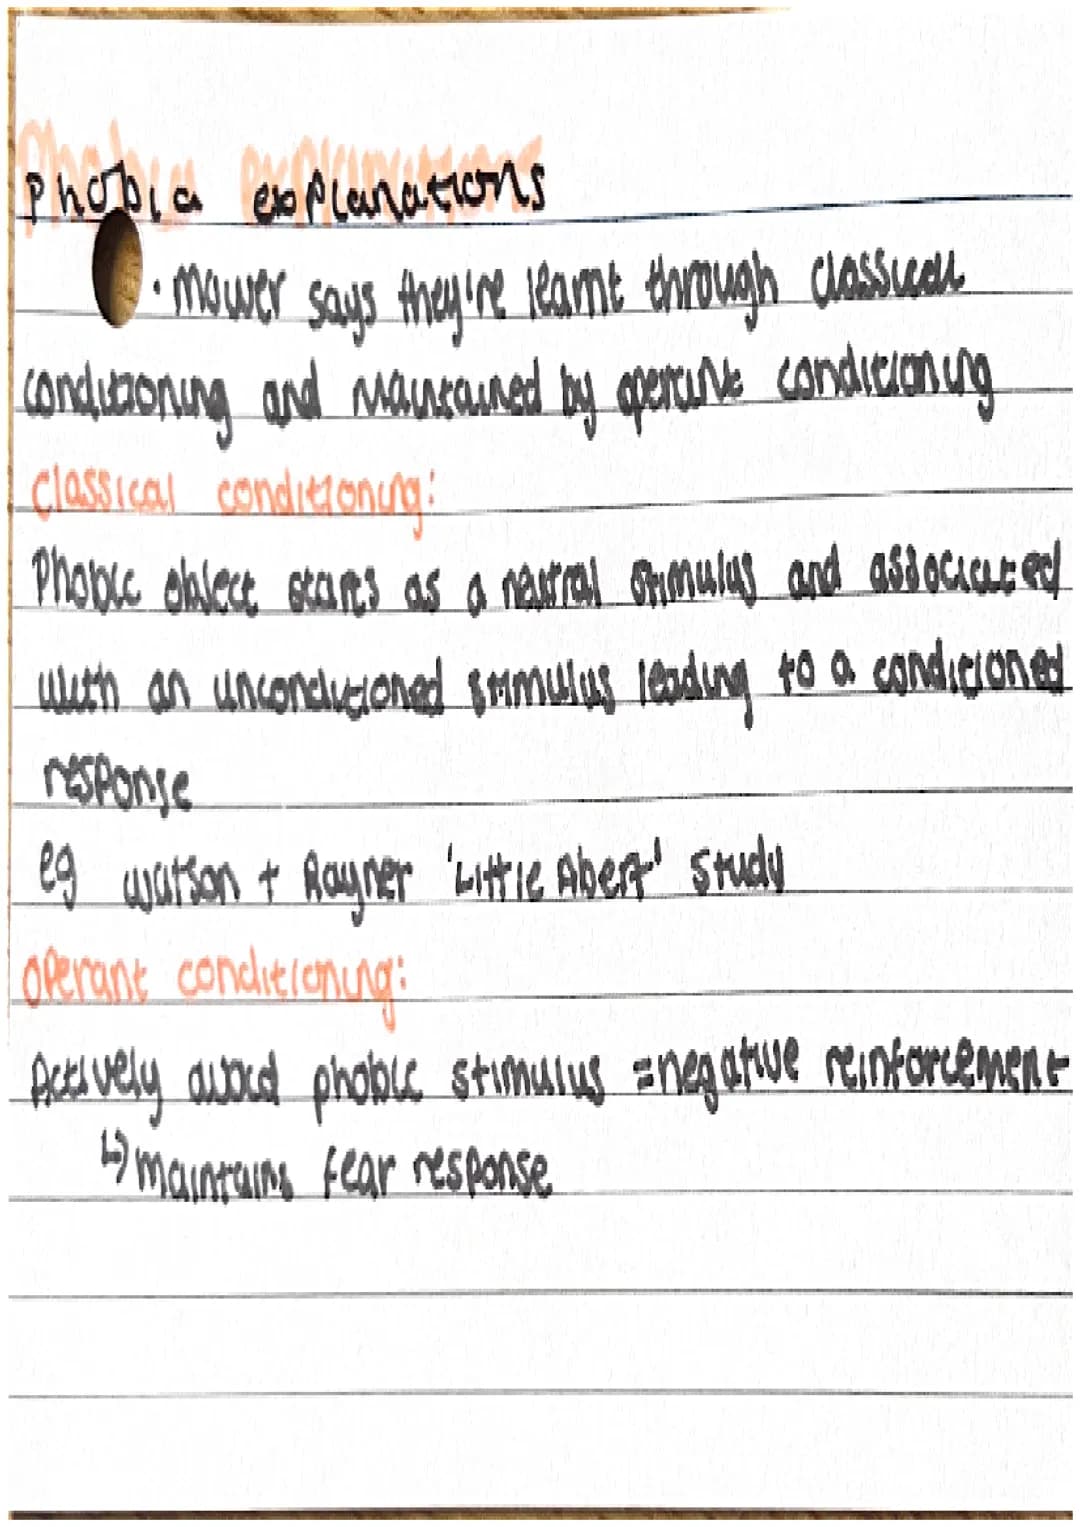 Phobia explanations
• Mower says they're learnt through classical
conditioning and maintained by operant conditioning
Classical conditioning:
Phobic object starts as a neutral stimulus and associated
with an unconditioned stimulus leading to a conditioned
response
eg Watson + Rayner 'Little Abert' study
Operant conditioning:
Actively avoid phobic stimulus = negative reinforcement
↳ maintains fear response